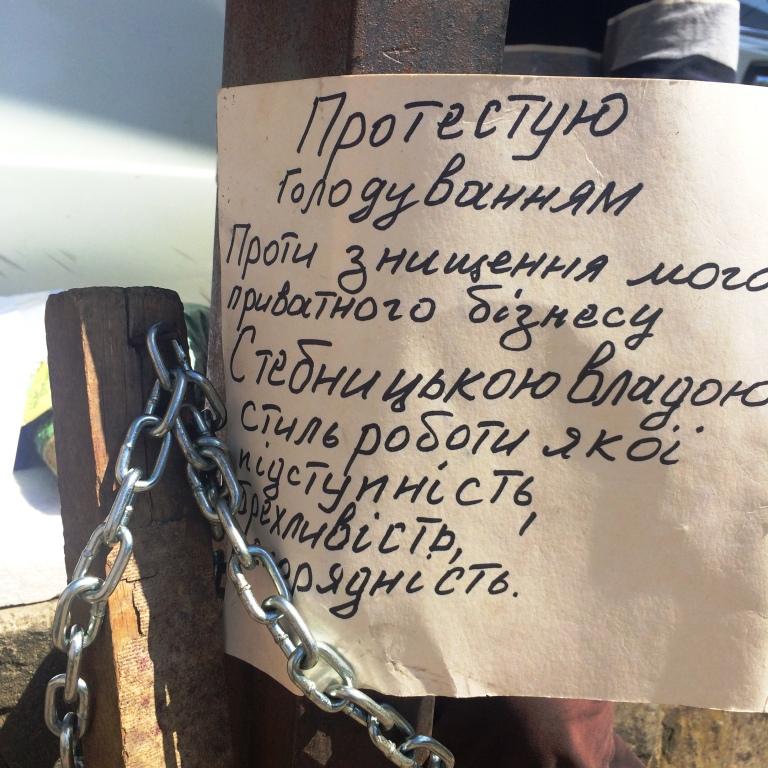 Протестую
голодуванням
Проти знищення мого
приватного бізнесу
Стебницькою владою
стиль роботи якої
підступність,
брехливість,